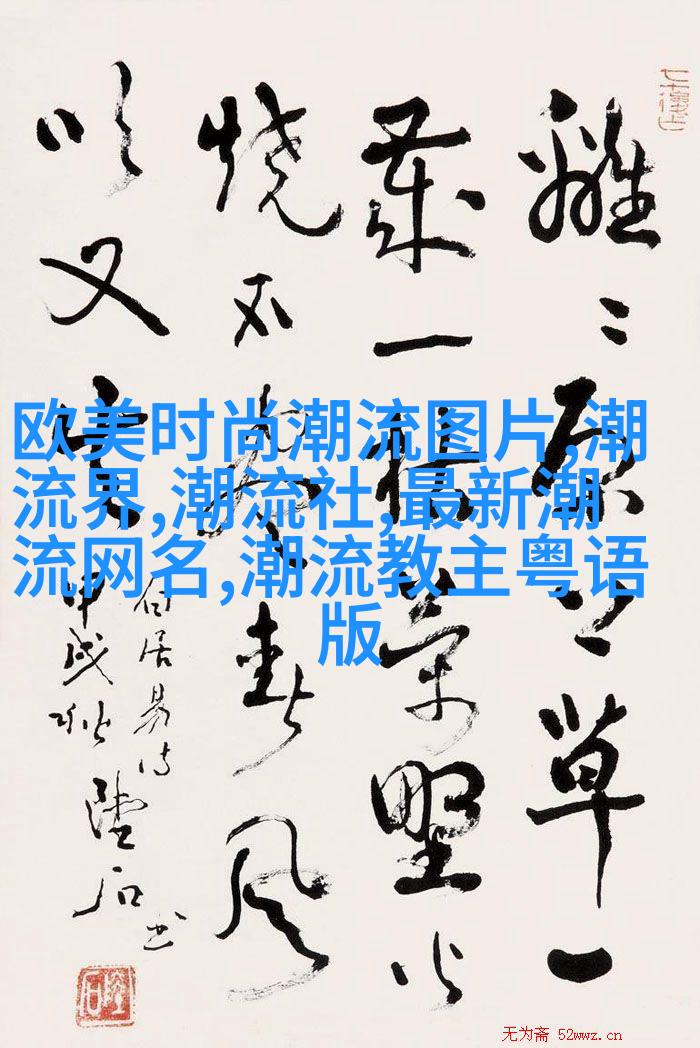 離〻原上草一
歲一枯荣野火
烧不盡春风
吹又生
白居易诗
甲戌秋 陸石书
欧美时尚潮流图片,潮
流界,潮流社,最新潮
流网名,潮流教主粤语
版
无为斋 52wwz.cn